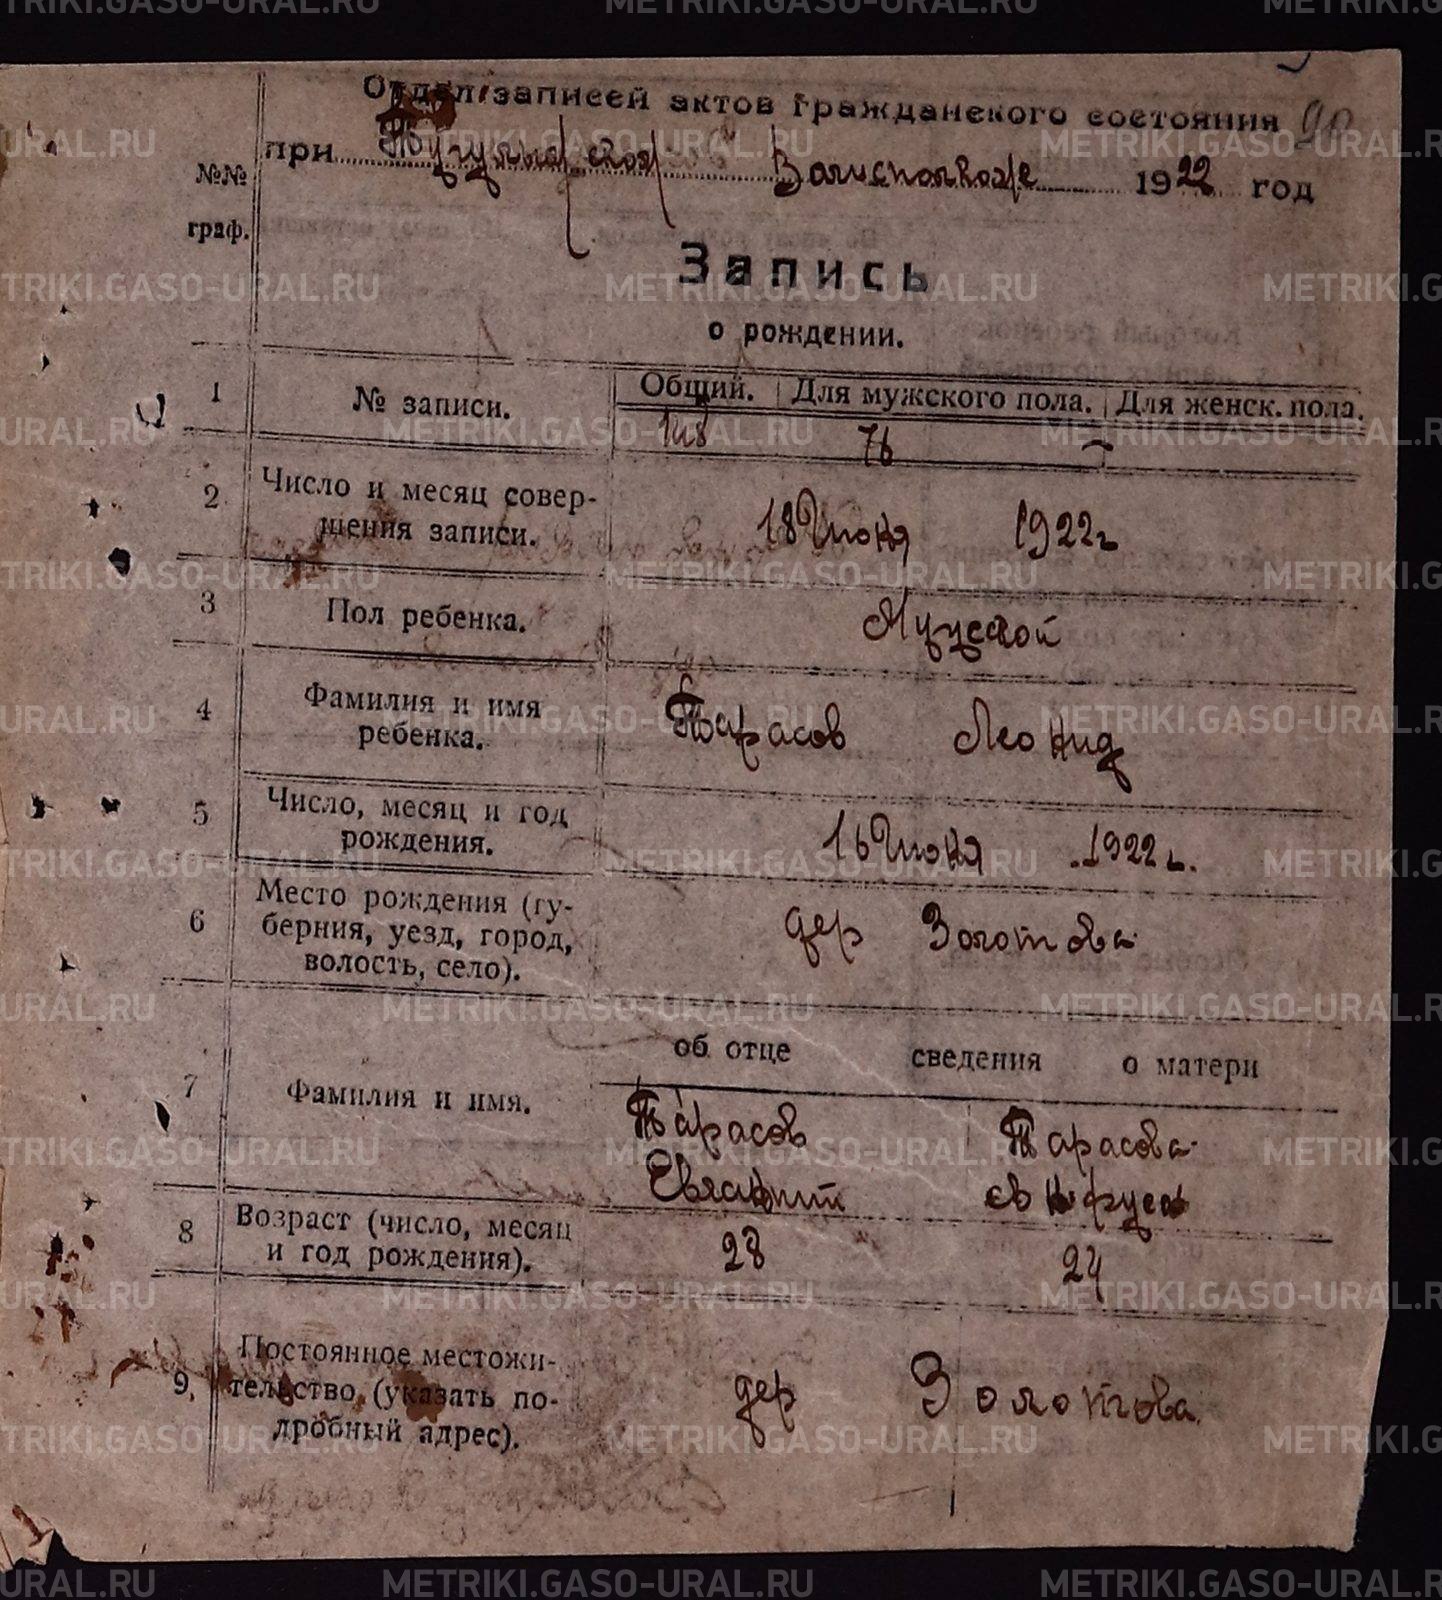 Отдел записей актов гражданского состояния 90
при Волисполкоме 1922 год
№№
граф.
Запись
о рождении.
1 № записи. Общий. Для мужского пола. Для женск. пола.
148 76 –
2 Число и месяц совер-
шения записи. 18 Июня 1922 г
3 Пол ребенка. Мужской
4 Фамилия и имя
ребенка. Тарасов Леонид
5 Число, месяц и год
рождения. 16 Июня 1922 г.
6 Место рождения (гу-
берния, уезд, город,
волость, село). дер Золотова
об отце сведения о матери
7 Фамилия и имя. Тарасов Тарасова
8 Возраст (число, месяц
и год рождения). 28 24
9. Постоянное местожи-
тельство, (указать по-
дробный адрес). дер Золотова
METRIKI.GASO-URAL.RU